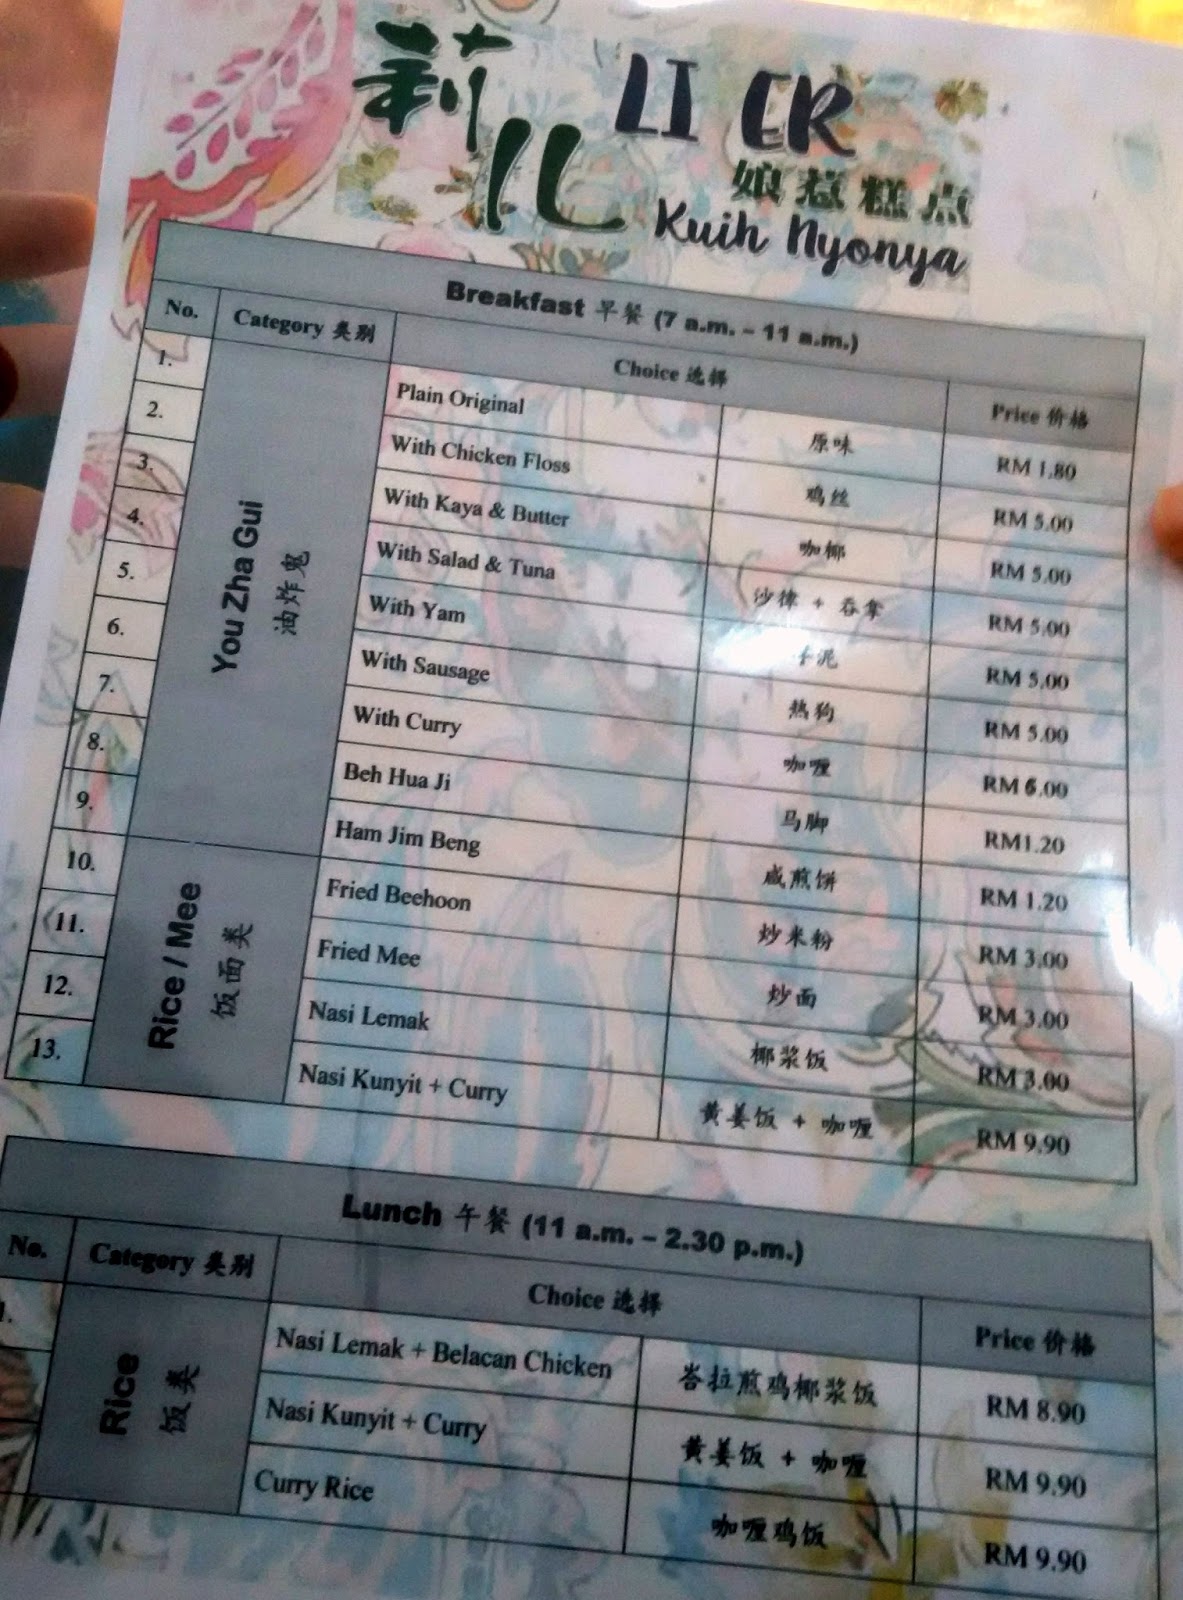 莉儿 LI ER
娘惹糕点
Kuih Nyonya
Breakfast 早餐 (7 a.m. – 11 a.m.)
No. Category 类别 Choice 选择 Price 价格
You Zha Gui 油炸鬼
1. Plain Original 原味 RM 1.80
2. With Chicken Floss 鸡丝 RM 5.00
3. With Kaya & Butter 咖椰 RM 5.00
4. With Salad & Tuna 沙律 + 吞拿 RM 5.00
5. With Yam 泥 RM 5.00
6. With Sausage 热狗 RM 5.00
7. With Curry 咖喱 RM 6.00
8. Beh Hua Ji 马脚 RM1.20
9. Ham Jim Beng 咸煎饼 RM 1.20
Rice / Mee 饭面类
10. Fried Beehoon 炒米粉 RM 3.00
11. Fried Mee 炒面 RM 3.00
12. Nasi Lemak 椰浆饭 RM 3.00
13. Nasi Kunyit + Curry 黄姜饭 + 咖喱 RM 9.90
Lunch 午餐 (11 a.m. – 2.30 p.m.)
No. Category 类别 Choice 选择 Price 价格
Rice 饭类
1. Nasi Lemak + Belacan Chicken 峇拉煎鸡椰浆饭 RM 8.90
Nasi Kunyit + Curry 黄姜饭 + 咖喱 RM 9.90
Curry Rice 咖喱鸡饭 RM 9.90